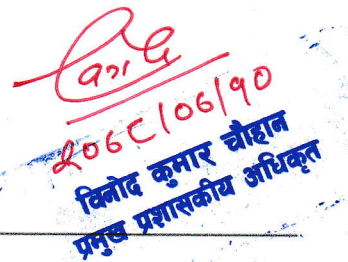 २०६८/०६/१०
विनोद कुमार चौहान
प्रमुख प्रशासकीय अधिकृत